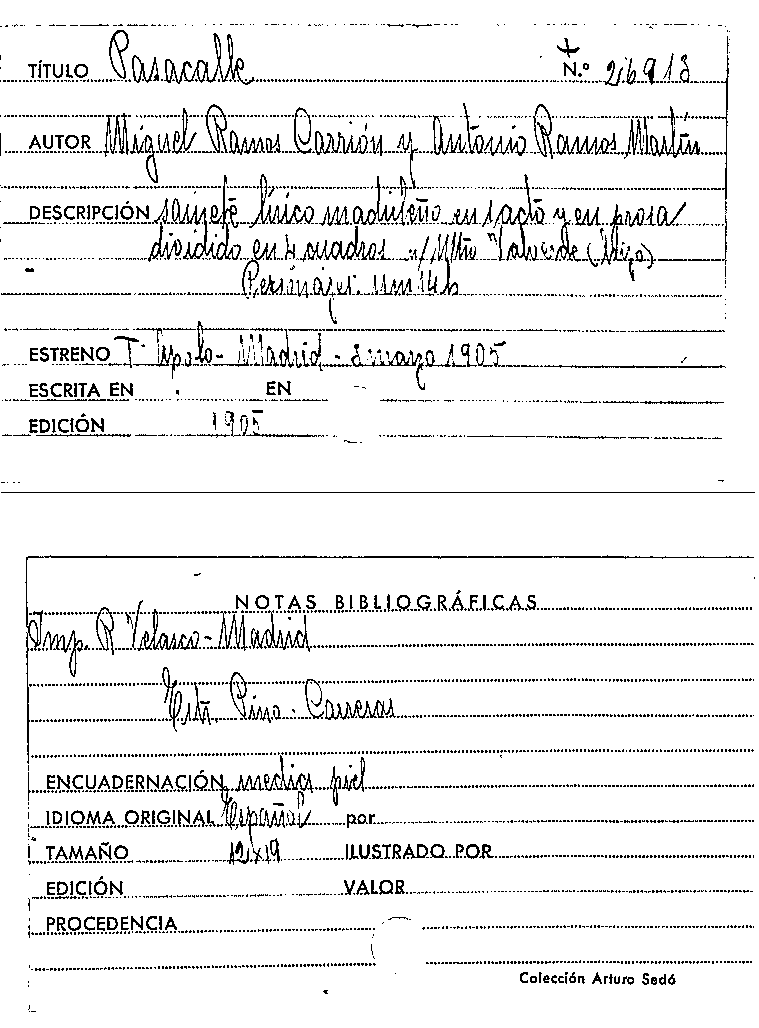 TÍTULO Pasacalle N.º 26913
AUTOR Miguel Ramos Carrión y Antonio Ramos Martín
DESCRIPCIÓN sainete lírico madrileño en 1 acto y en prosa
dividido en 4 cuadros Mtro Valverde (hijo)
Personajes. 11m 14h
ESTRENO T. Apolo - Madrid - marzo 1905
ESCRITA EN EN
EDICIÓN 1905
NOTAS BIBLIOGRÁFICAS
Imp. R Velasco - Madrid
Pino - Carreras
ENCUADERNACIÓN media piel
IDIOMA ORIGINAL Español por
TAMAÑO 12x19 ILUSTRADO POR
EDICIÓN VALOR
PROCEDENCIA
Colección Arturo Sedó